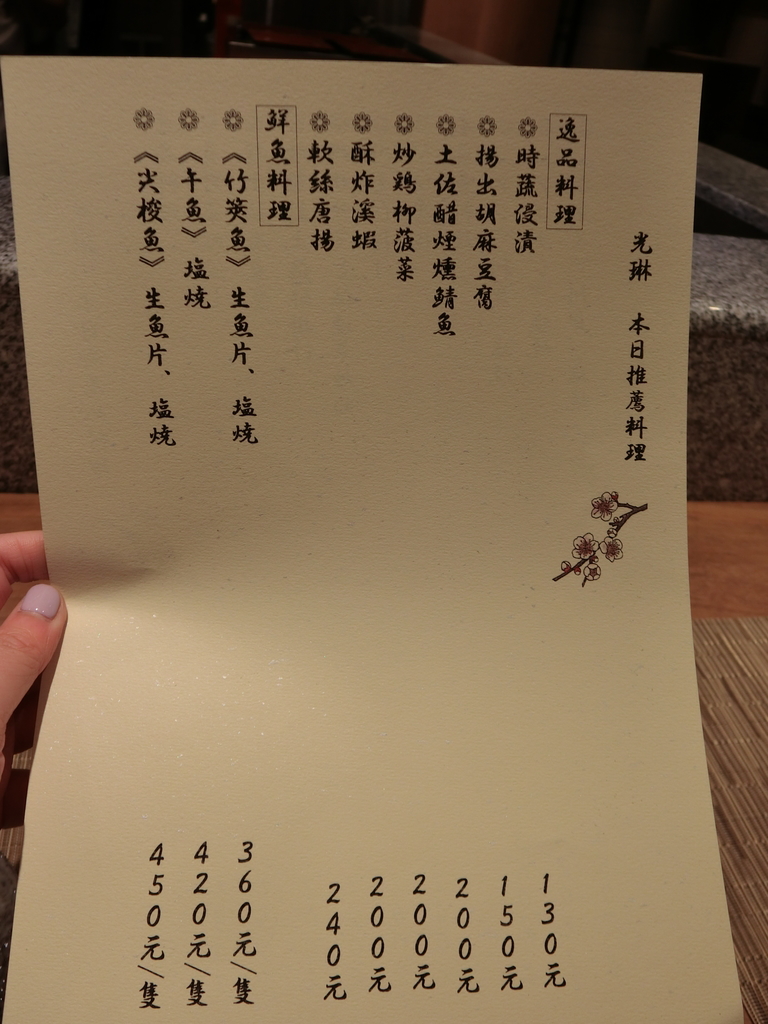 光琳 本日推薦料理
逸品料理
時蔬浸漬 130元
揚出胡麻豆腐 150元
土佐醋煙燻鯖魚 200元
炒鶏柳菠菜 200元
酥炸溪蝦 200元
軟絲唐揚 240元
鮮魚料理
《竹筴魚》生魚片、塩燒 360元/隻
《午魚》塩燒 420元/隻
《尖梭魚》生魚片、塩燒 450元/隻